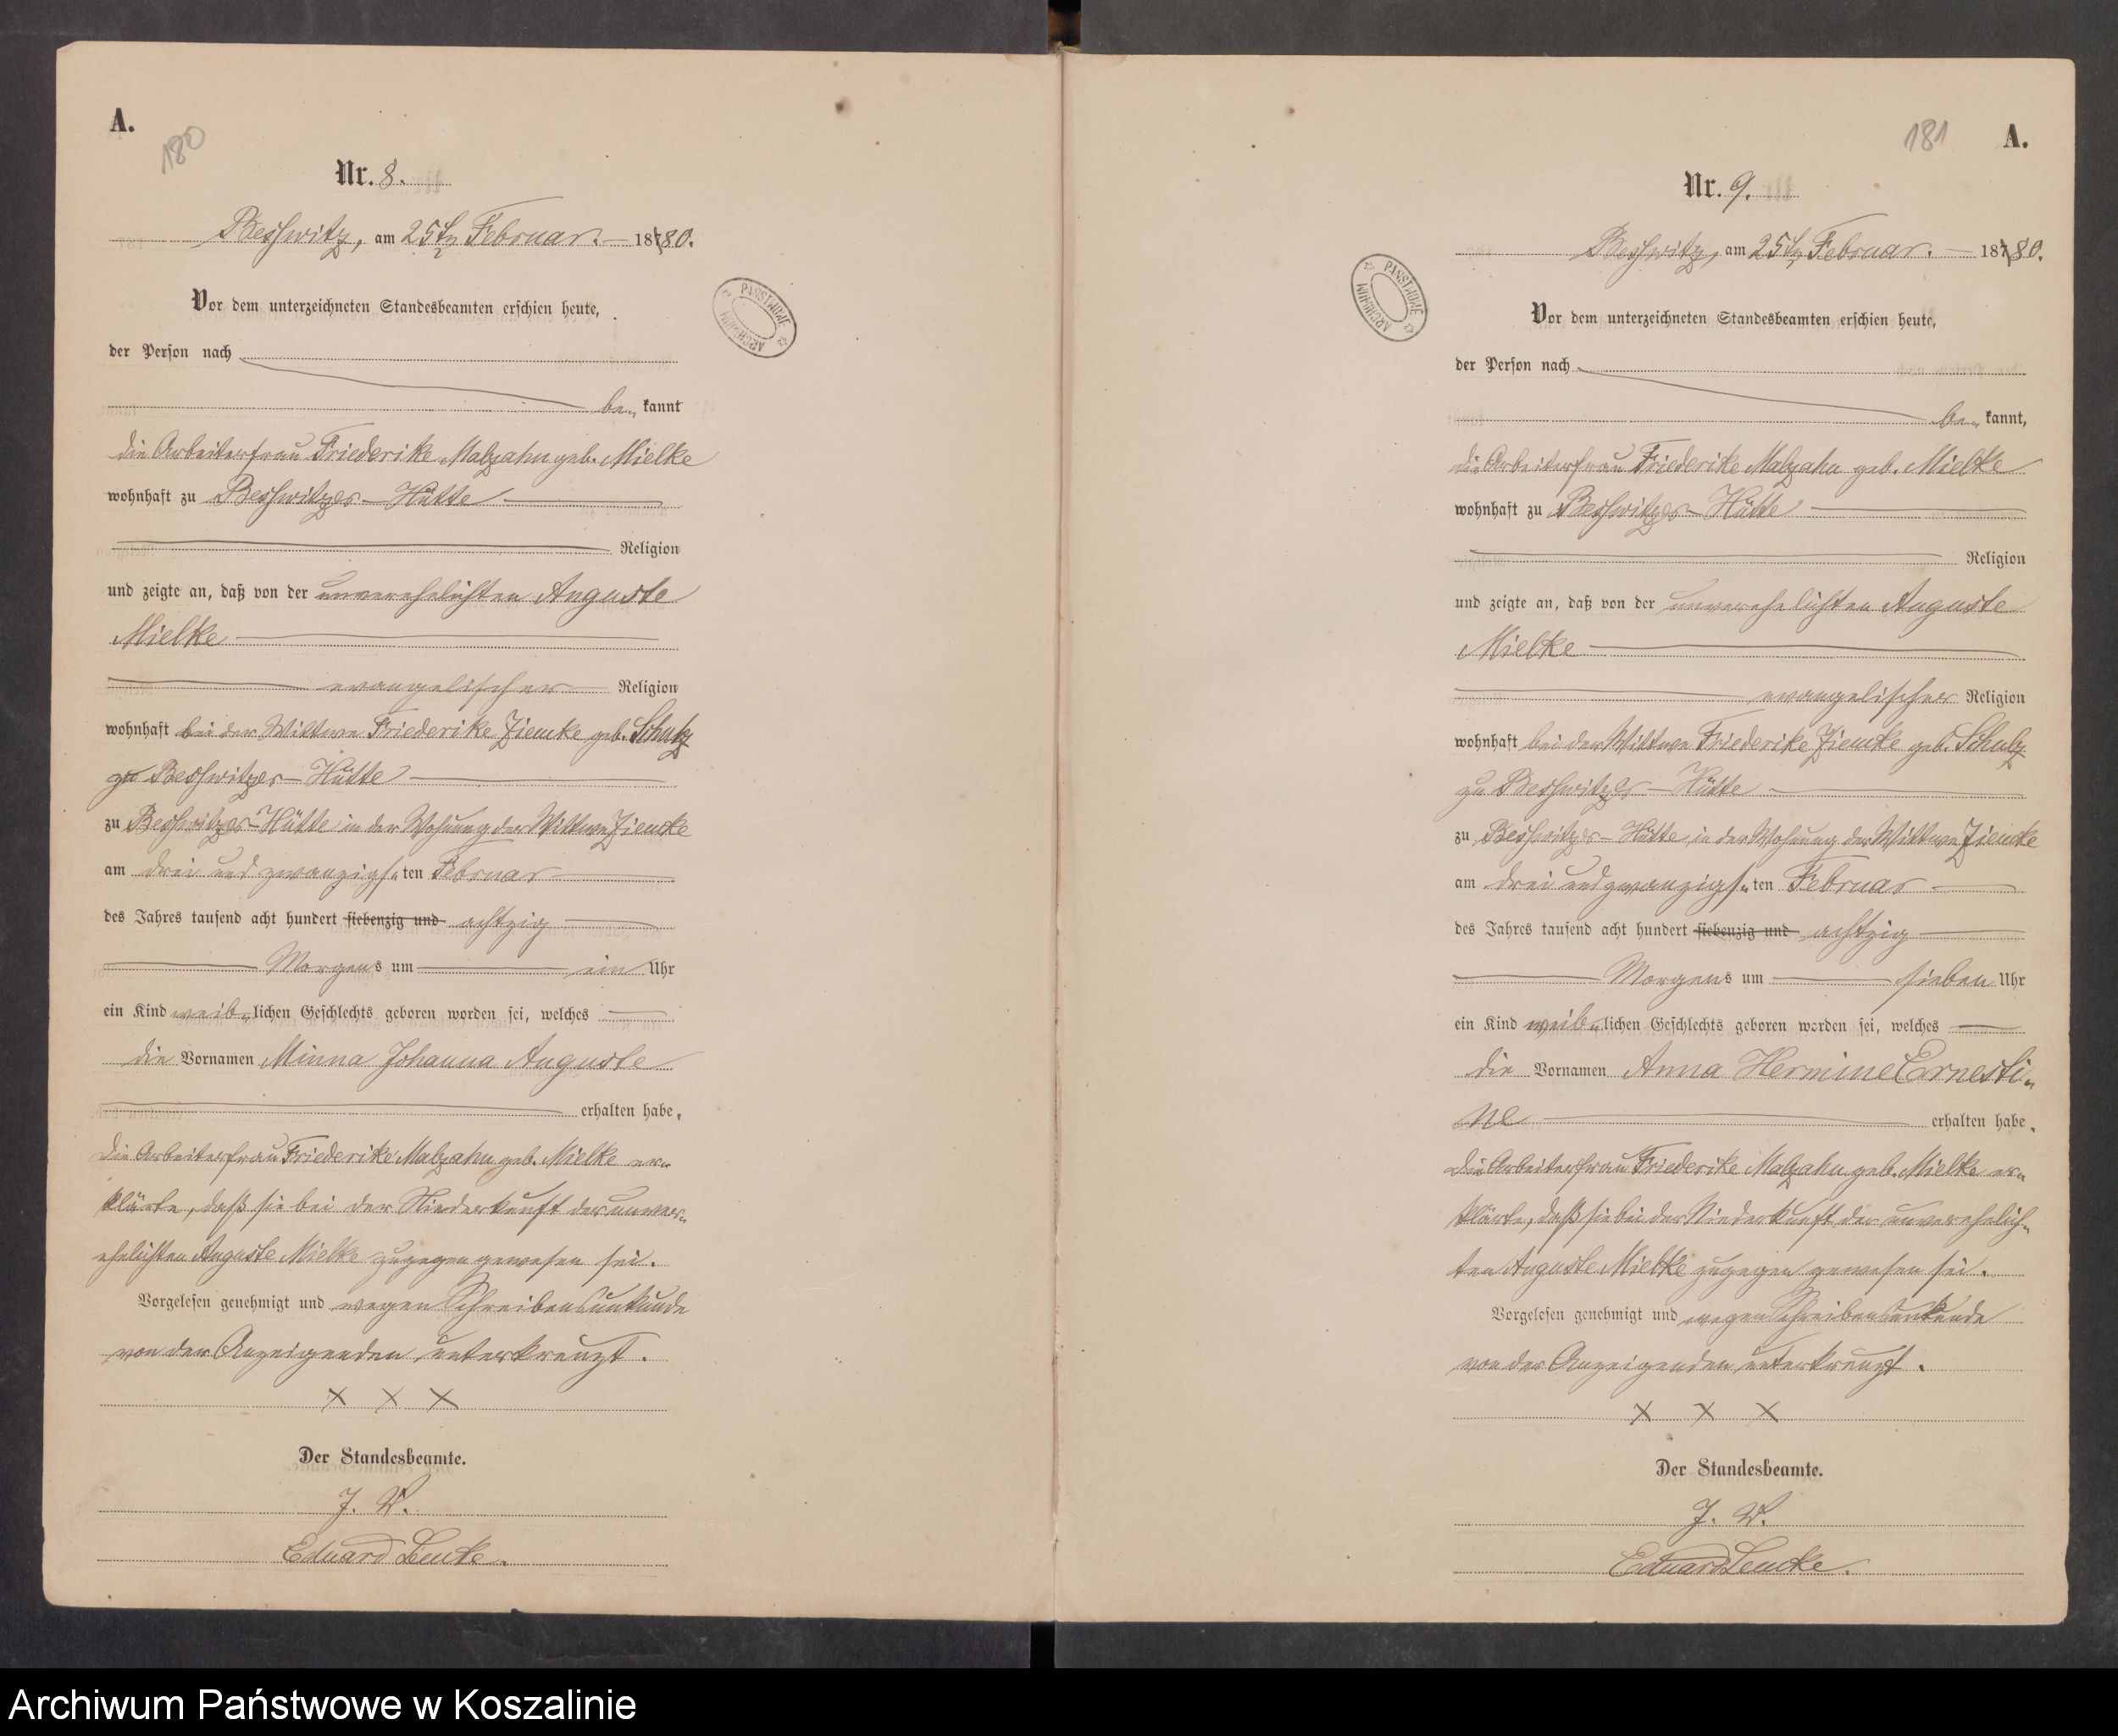 A.
180
Nr. 8.
Beßwitz, am 25ten Februar. 18780.
Vor dem unterzeichneten Standesbeamten erschien heute,
der Person nach
be„ kannt
die Arbeiterfrau Friederike Malzahn geb. Mielke
wohnhaft zu Beßwitzer-Hütte
Religion
und zeigte an, daß von der unverehelichten Auguste
Mielke
evangelischer Religion
wohnhaft bei der Wittwe Friederike Ziemke geb. Schulz
zu Beßwitzer-Hütte
zu Beßwitzer-Hütte in der Wohnung der Wittwe Ziemke
am drei und zwanzigs„ten Februar
des Jahres tausend acht hundert siebenzig und achtzig
Morgens um ein Uhr
ein Kind weib„lichen Geschlechts geboren worden sei, welches
die Vornamen Minna Johanna Auguste
erhalten habe.
Die Arbeiterfrau Friederike Malzahn geb. Mielke er„
klärte, daß sie bei der Niederkunft der unver„
ehelichten Auguste Mielke zugegen gewesen sei.
Vorgelesen genehmigt und wegen Schreibensunkunde
von der Anzeigenden unterkreuzt.
X X X
Der Standesbeamte.
J. V.
Eduard Lemke.
PAŃSTWOWE
ARCHIWUM
181
A.
Nr. 9.
Beßwitz, am 25ten Februar. 18780.
Vor dem unterzeichneten Standesbeamten erschien heute,
der Person nach
be„ kannt,
die Arbeiterfrau Friederike Malzahn geb. Mielke
wohnhaft zu Beßwitzer-Hütte
Religion
und zeigte an, daß von der unverehelichten Auguste
Mielke
evangelischer Religion
wohnhaft bei der Wittwe Friederike Ziemke geb. Schulz
zu Beßwitzer-Hütte
zu Beßwitzer-Hütte in der Wohnung der Wittwe Ziemke
am drei und zwanzigs„ten Februar
des Jahres tausend acht hundert siebenzig und achtzig
Morgens um sieben Uhr
ein Kind weib„lichen Geschlechts geboren worden sei, welches
die Vornamen Anna Hermine Ernesti„
ne erhalten habe.
Die Arbeiterfrau Friederike Malzahn geb. Mielke er„
klärte, daß sie bei der Niederkunft der unverehelich„
ten Auguste Mielke zugegen gewesen sei.
Vorgelesen genehmigt und wegen Schreibensunkunde
von der Anzeigenden unterkreuzt.
X X X
Der Standesbeamte.
J. V.
Eduard Lemke.
PAŃSTWOWE
ARCHIWUM
Archiwum Państwowe w Koszalinie